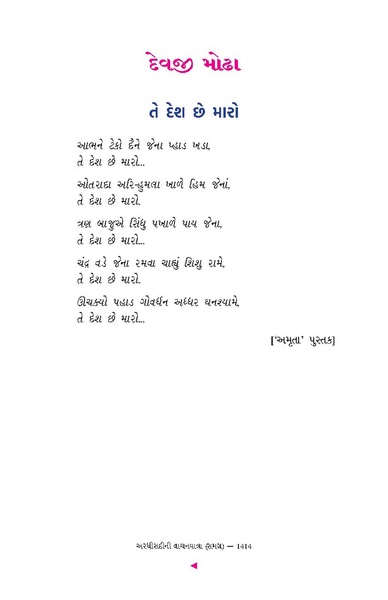 દેવજી મોઢા
તે દેશ છે મારો
આભને ટેકો દૈને જેના પ્હાડ ખડા,
તે દેશ છે મારો...
ઓતરાદા અરિ-હુમલા ખાળે હિમ જેનાં,
તે દેશ છે મારો.
ત્રણ બાજુએ સિંધુ પખાળે પાય જેના,
તે દેશ છે મારો...
ચંદ્ર વડે જેના રમવા ચાહ્યું શિશુ રામે,
તે દેશ છે મારો.
ઊંચક્યો પહાડ ગોવર્ધન અધ્ધર ઘનશ્યામે,
તે દેશ છે મારો...
['અમૃતા' પુસ્તક]
અરધીસદીની વાચનયાત્રા (સમગ્ર) — 1414